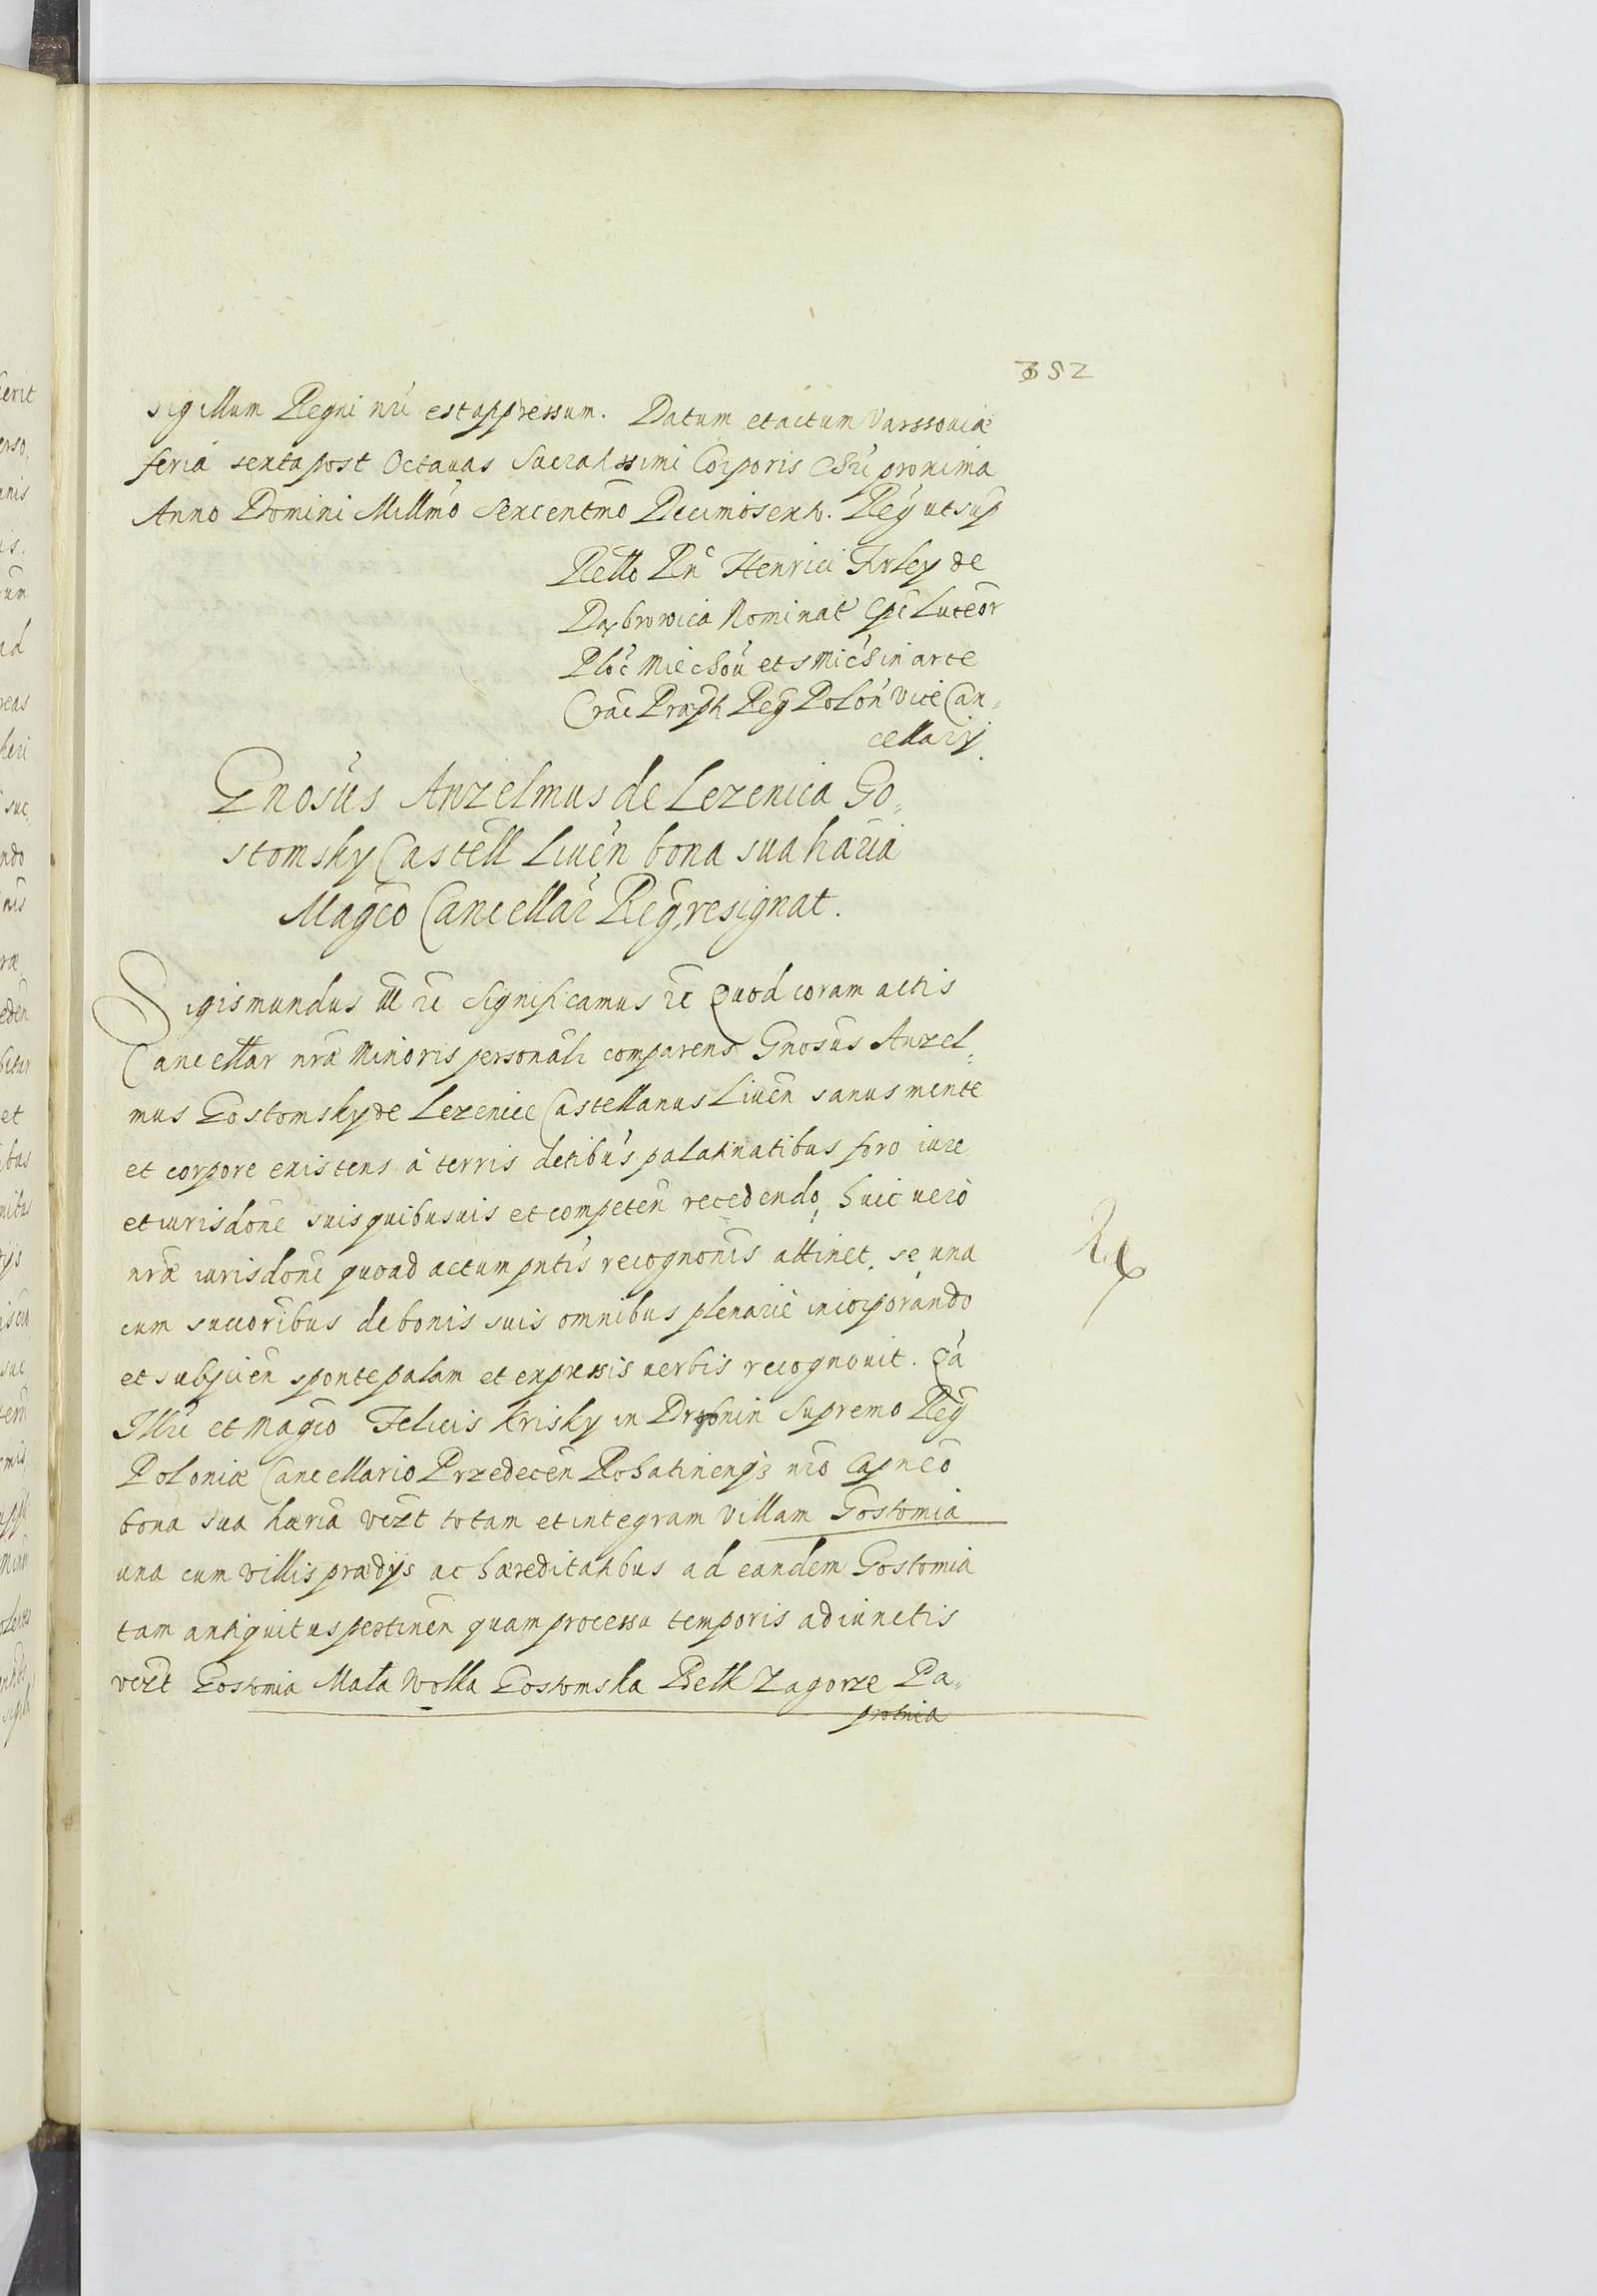 352
sigillum Regni nri est appressum. Datum et actum Varssoviæ
feria sexta post Octauas Sacratissimi Corporis Chri proxima
Anno Domini Millmo Sexcentmo Decimosexto. Reg ut sup
Rello Rn Henrici Firley de
Dąbrowica Nominat Epi Luceor
Ploc Miechou et S Mich in arce
Crac Præpti Reg Polon Vice Can=
cellarij.
Gnosus Anzelmus de Lezenica Go=
stomsky Castell Liuen bona sua hæria
Magco Cancellar Reg resignat.
Sigismundus III rc Significamus rc Quod coram actis
Cancellar nræ Minoris personali comparens Gnosus Anzel=
mus Gostomsky de Lezenice Castellanus Liuen sanus mente
et corpore existens à terris detibus palatinatibus foro iure
et iurisdone suis quibusuis et competen recedendo, huic uero
nræ iurisdoni quoad actum pntis recognonis attinet, se una
cum succoribus de bonis suis omnibus plenarie incorporando
et subijcien sponte palam et expressis uerbis recognouit. Qa
Illri et Magco Felicis Krisky in Drobnin Supremo Reg
Poloniæ Cancellario Przedecen Rohatinensq3 nro Capneo
bona sua hæria vczt totam et integram Villam Gostomia
una cum villis prædijs ac hæreditatibus ad eandem Gostomia
tam antiquitus pertinen quam processu temporis adiunctis
vczt Gostomia Mała Wolka Gostomska Pełk Zagorze Pa=
protnia